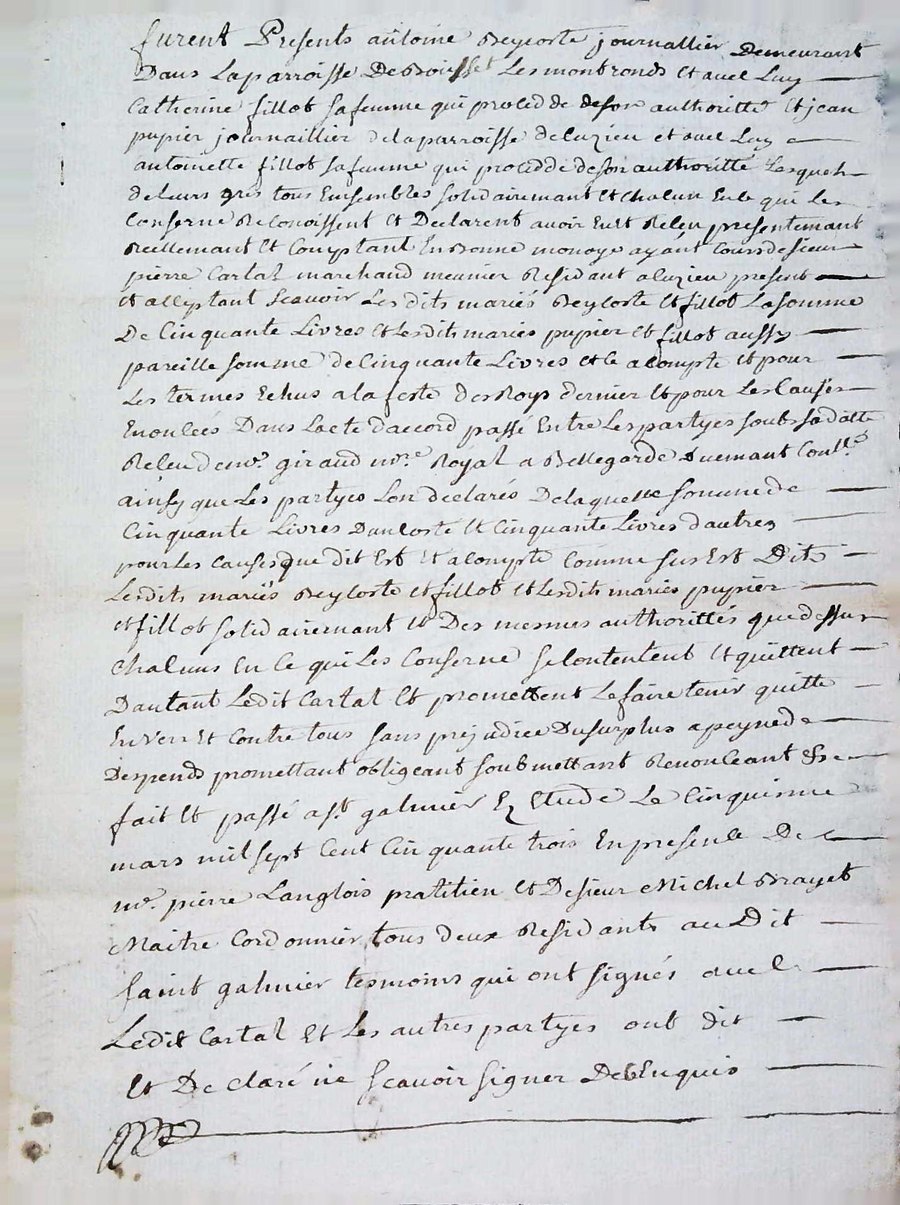 furent Presents antoine Beycoste journallier Demeurant
Dans Laparroisse De Boisset Les montronds Et avec Luy
Catherine fillot safemme qui procedde deson authoritté Et jean
pupier journallier delaparroisse de Cuzieu et avec Luy
antoinette fillot safemme qui procedde deson authoritté Lesquels
deleurs grés tous Ensembles solidairemant Et chacun En ce qui Les
Conserne Reconoissent Et Declarent avoir Eu et Receu presentemant
Reellemant Et Comptant En Bonne monoye ayant Cours de sieur
pierre Cartal marchand meunier Residant a Cuzieu present
et acceptant scavoir Les dits mariés Beycoste Et fillot La somme
De Cinquante Livres Et Lesdits mariés pupier et fillot aussy
pareille somme de Cinquante Livres et Ce acompte Et pour
Les termes Echus a la feste des Roys dernier Et pour Les Causes
Enoncées Dans Lacte daccord passé Entre Les partyes soubs sa datte
Receu de me. giraud nore. Royal a Bellegarde Duemant Conllé.
ainsy que Les partyes Lon declarés De laquelle somme de
Cinquante Livres Dun Coste Et Cinquante Livres dautres
pour Les Causes que dit Est Et acompte Comme sus Est Dits
Lesdits mariés Beycoste et fillot Et Lesdits mariés pupier
et fillot solidairemant Et Des mesmes authorittés que dessus
Chacuns En Ce qui Les Conserne se Contentent Et quittent
Dautant Ledit Cartal Et promettent Le faire tenir quitte
Envers Et Contre tous sans prejudice Du surplus a peyne de
Despends promettant obligeant soubmettant Renonceant &c
fait Et passé a st. galmier Ez Etude Le Cinquieme
mars mil sept Cent Cinquante trois En presence De
me. pierre Langlois pratitien Et De sieur Michel Brayet
Maitre Cordonnier tous deux Residants au Dit
saint galmier tesmoins qui ont signés avec
Ledit Cartal Et Les autres partyes ont dit
Et Declaré ne scavoir signer De ce Enquis